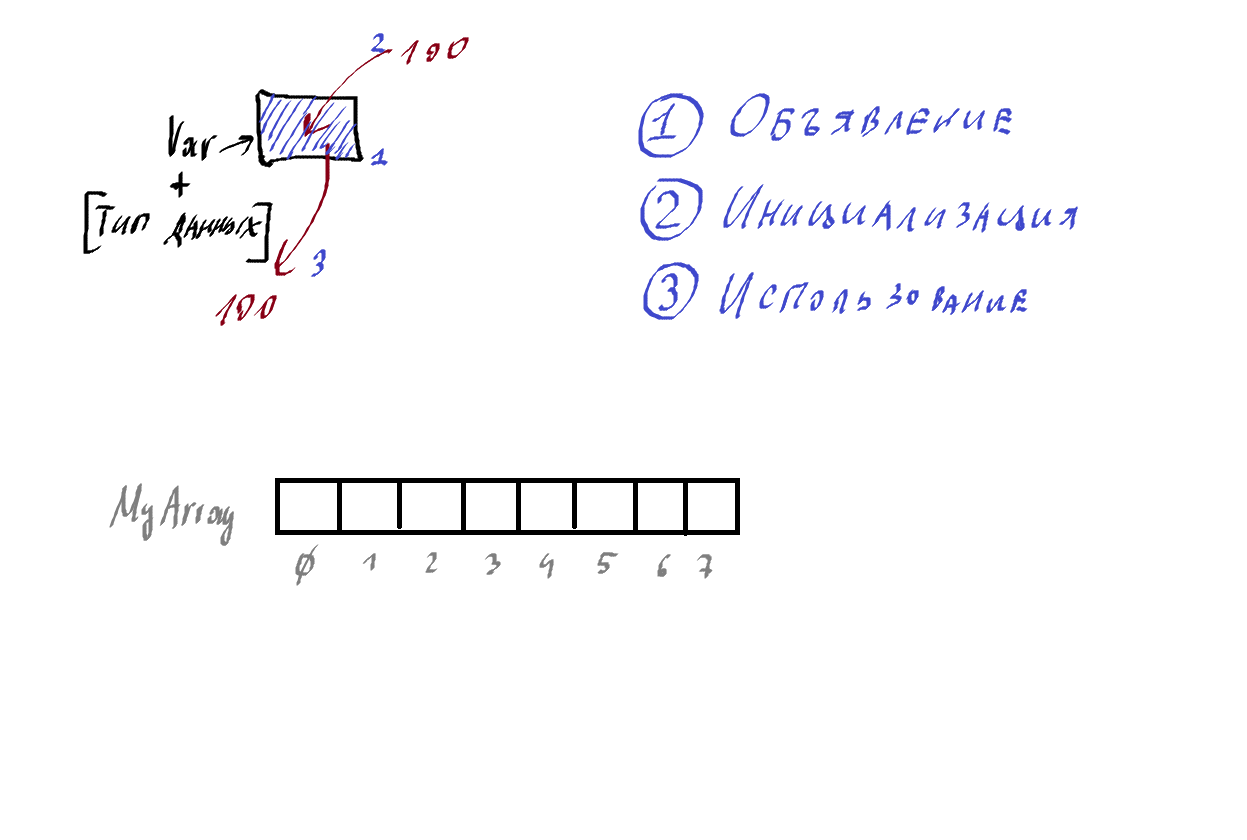 2 100
Var
1
+
[Тип данных]
3
100
1 Объявление
2 Инициализация
3 Использование
MyArray
0 1 2 3 4 5 6 7